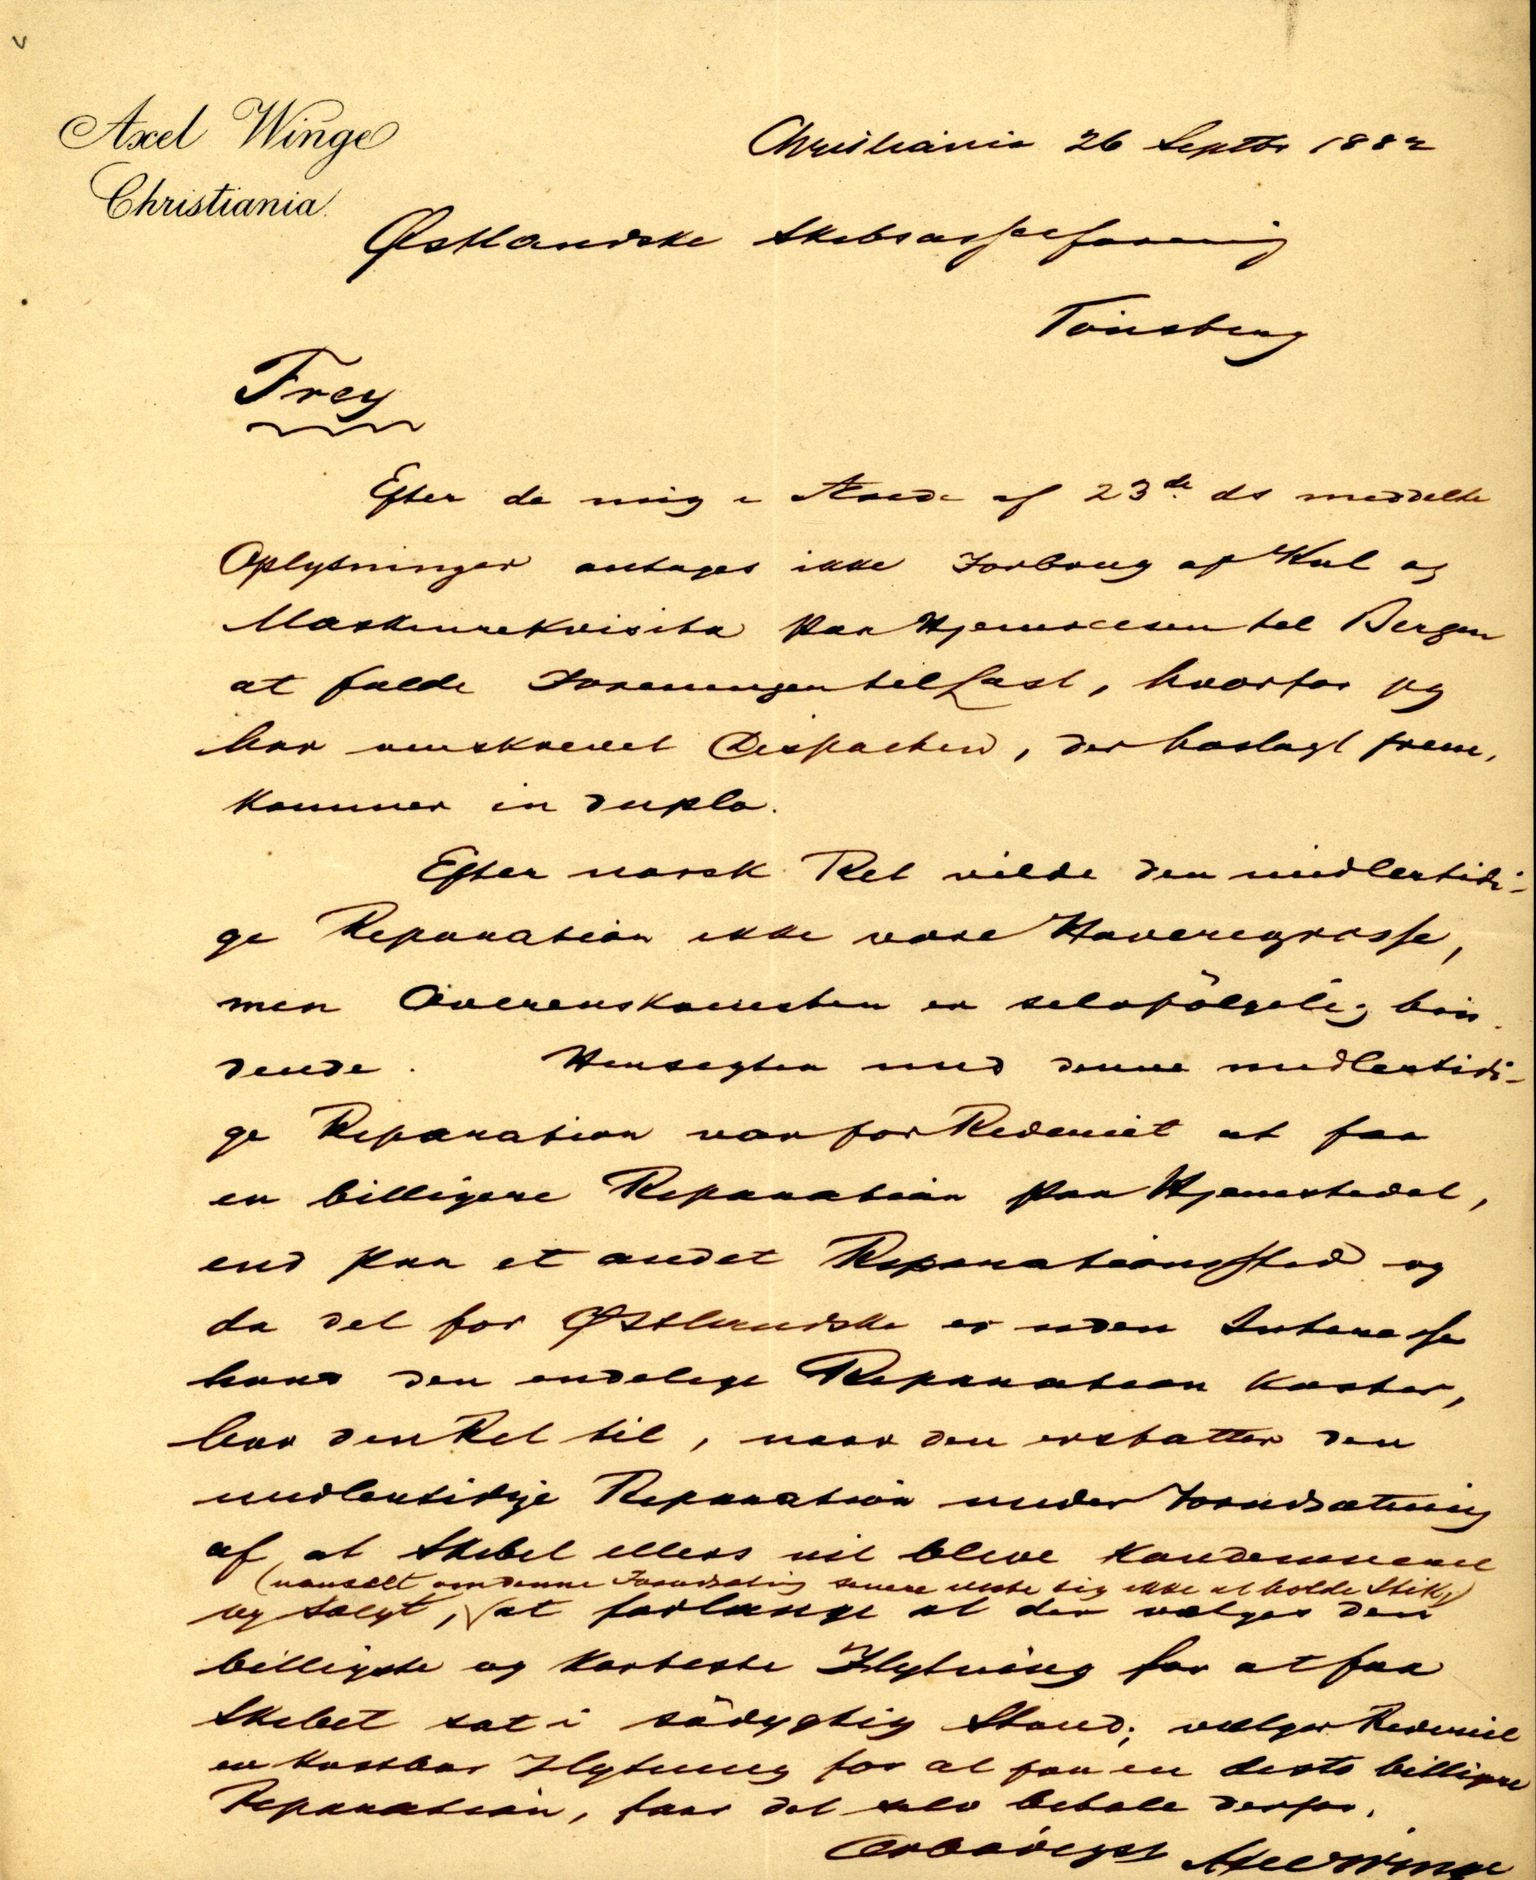 Axel Winge
Christiania.
Christiania 26 Septbr 1882
Østlandske Skibsassceforening
Tönsberg
Frey
Efter de mig i Ærede af 23de ds meddelte
Oplysninger antages ikke Forbrug af Kul og
Maskinrekvisita paa Hjemreisen til Bergen
at falde Foreningen til Last, hvorfor jeg
har omskrevet Dispachen, der hoslagt frem,
kommer in duplo.
Efter norsk Ret vilde den midlertidi-
ge Reparation ikke være Havarigrosse,
men Overenskomsten er selvfölgelig bin
dende. Hensigten med denne midlertidi-
ge Reparation var for Rederiet at faa
en billigere Reparation paa Hjemstedet,
end paa et andet Reparationssted og
da det for Østlandske er uden Interesse
hvad den endelige Reparation koster,
har den Ret til, naar den erstatter den
midlertidige Reparation under Forudsætning
af, at Skibet ellers vil blive kondemneret
(uanseet om denne Forudsætning senere viste sig ikke at holde Stik)
og solgt, at forlange at der vælges den
billigste og korteste Flytning for at faa
Skibet sat i södygtig Stand; vælger Rederiet
en kostbar Flytning for at faa en desto billigere
Reparation, faar det selv betale derfor.
Ærbødigst Axel Winge